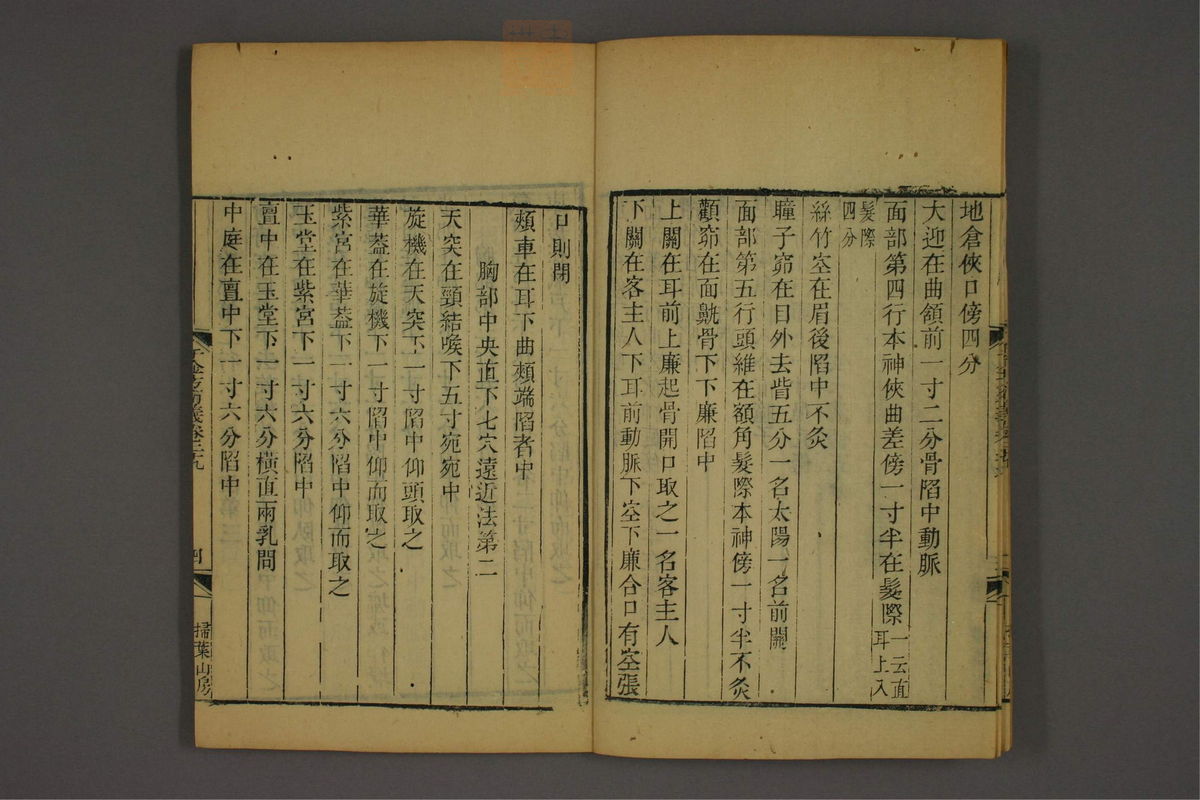 地倉俠口傍四分
大迎在曲頷前一寸二分骨陷中動脈
面部第四行本神俠曲差傍一寸半在髮際一云直耳上入
髮際四分
絲竹空在眉後陷中不灸
瞳子窌在目外去眥五分一名太陽一名前關
面部第五行頭維在額角髮際本神傍一寸半不灸
顴窌在面鼽骨下下廉陷中
上關在耳前上廉起骨開口取之一名客主人
下關在客主人下耳前動脈下空下廉合口有空張
口則閉
頰車在耳下曲頰端陷者中
胸部中央直下七穴遠近法第二
天突在頸結喉下五寸宛宛中
旋機在天突下一寸陷中仰頭取之
華蓋在旋機下一寸陷中仰而取之
紫宮在華蓋下一寸六分陷中仰而取之
玉堂在紫宮下一寸六分陷中
亶中在玉堂下一寸六分橫直兩乳間
中庭在亶中下一寸六分陷中
千金方衍義卷二十九
四
掃葉山房